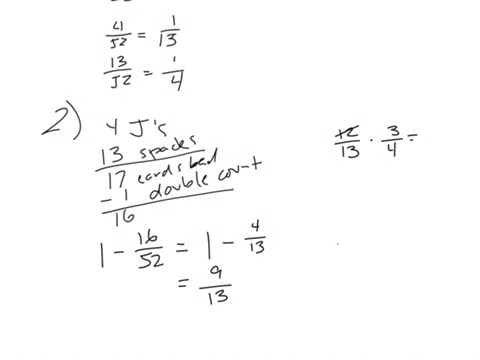 4/52 = 1/13
13/52 = 1/4
2) 4 J's
13 spades
17 cards bad
- 1 double count
16
1 - 16/52 = 1 - 4/13
= 9/13
12/13 · 3/4 =